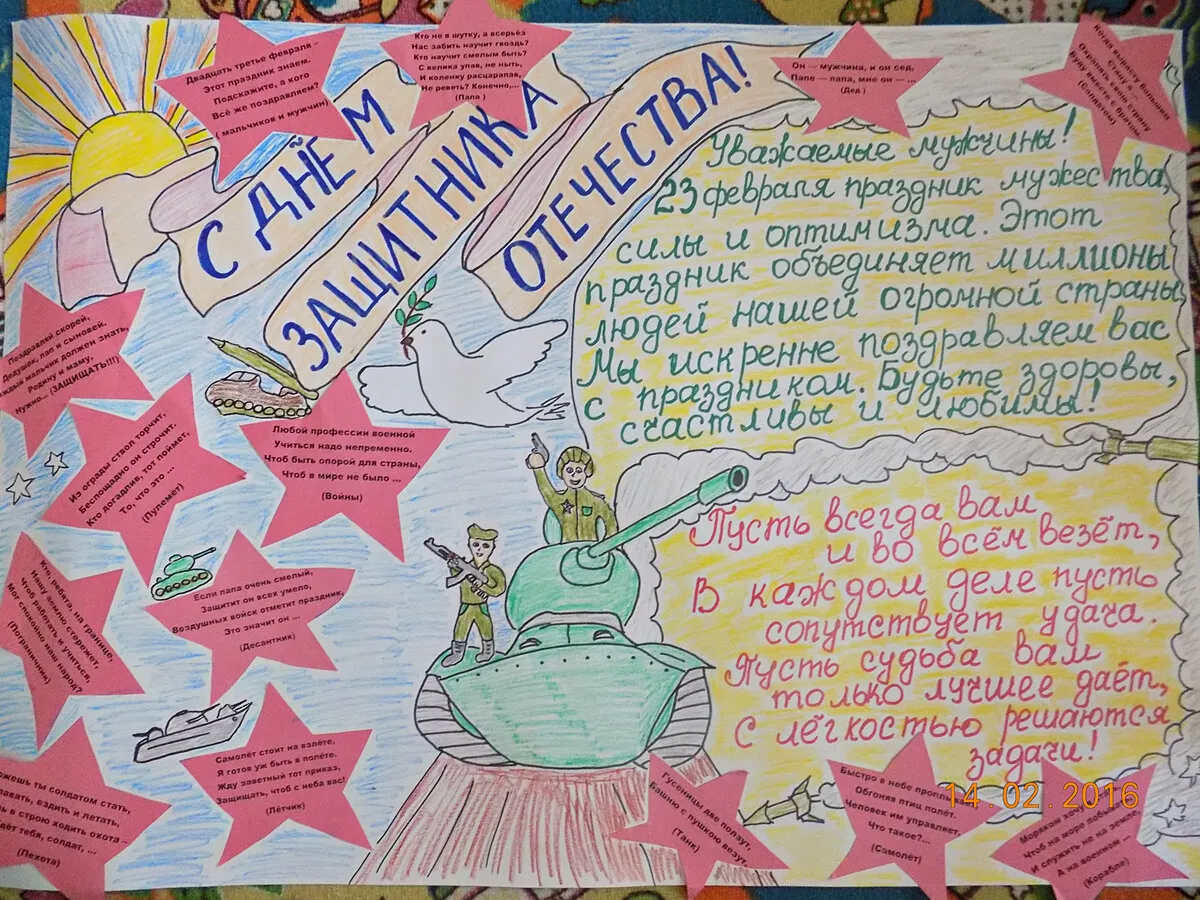 С ДНЁМ
ЗАЩИТНИКА
ОТЕЧЕСТВА!
Двадцать третье февраля –
Этот праздник знаем.
Подскажите, а кого
Всё же поздравляем?
( мальчиков и мужчин)
Кто не в шутку, а всерьёз
Нас забить научит гвоздь?
Кто научит смелым быть?
С велика упав, не ныть,
И коленку расцарапав,
Не реветь? Конечно,...
(Папа )
Он — мужчина, и он сед,
Папе — папа, мне он — ...
(Дед )
Когда вырасту большим
Стану я ...
Охранять свою страну
Буду вместе с братом
(Солдатом)
Уважаемые мужчины!
23 февраля праздник мужества,
силы и оптимизма. Этот
праздник объединяет миллионы
людей нашей огромной страны
Мы искренне поздравляем вас
с праздником. Будьте здоровы,
счастливы и любимы!
Поздравляй скорей,
Дедушек, пап и сыновей.
Каждый мальчик должен знать,
Родину и маму,
Нужно... (ЗАЩИЩАТЬ!!!)
Из ограды ствол торчит,
Беспощадно он строчит.
Кто догадлив, тот поймет,
То, что это ...
(Пулемёт)
Любой профессии военной
Учиться надо непременно.
Чтоб быть опорой для страны,
Чтоб в мире не было ...
(Войны)
Кто, ребята, на границе,
Нашу землю стережет,
Чтоб работать и учиться,
Мог спокойно наш народ?
(Пограничник)
Если папа очень смелый,
Защитит он всех умело,
Воздушных войск отметит праздник,
Это значит он ...
(Десантник)
Самолёт стоит на взлёте,
Я готов уж быть в полёте.
Жду заветный тот приказ,
Защищать, чтоб с неба вас!
(Лётчик)
ты солдатом стать,
ездить и летать,
в строю ходить охота –
тебя, солдат, ...
(Пехота)
Пусть всегда вам
и во всём везёт,
В каждом деле пусть
сопутствует удача.
Пусть судьба вам
только лучшее даёт,
С лёгкостью решаются
задачи!
Гусеницы две ползут,
Башню с пушкою везут.
(Танк)
Быстро в небе
Обгоняя птиц полёт.
Человек им управляет,
Что такое?...
(Самолёт)
Моряком хочу
Чтоб на море побывать
И служить не на земле,
А на военном ...
(Корабле)
14.02.2016